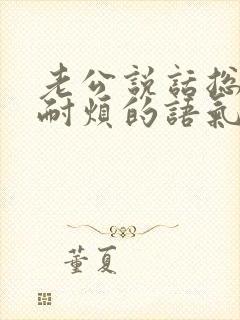 老公説話総
耐煩的語氣
董夏